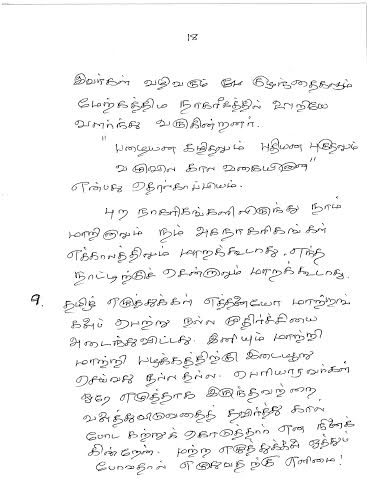 18
இவர்கள் வழிவரும் குழந்தைகளும்
மேற்கத்திய நாகரீகத்தில் ஊறியே
வளர்ந்து வருகின்றனர்.
"பழையன கழிதலும் புதியன புகுதலும்
வழுவல கால வகையினானே"
என்பது தொல்காப்பியம்.
புற நாகரிகங்களிலிருந்து நாம்
மாறினாலும் நம் அகநாகரிகங்கள்
எக்காலத்திலும் மாறக்கூடாது. எந்த
நாட்டிற்குச் சென்றாலும் மாறக்கூடாது.
9. தமிழ் எழுத்துக்கள் எத்தனையோ மாற்றங்
களைப் பெற்று நல்ல முதிர்ச்சியை
அடைந்துவிட்டது. இனியும் மாற்றி
மாற்றி படிக்கத்திற்கு இடையூறு
செய்வது நல்லதல்ல. பெரியாரவர்கள்
ஒரே எழுத்தாக இருந்தவற்றை
வசத்துவிடுவதைத் தவிர்த்து கால்
போட கற்றுக் கொடுத்தார் என நினைக்
கின்றேன். மற்ற எழுத்துக்களை ஒத்துப்
போவதால் எழுதுவதற்கு எளிமை!